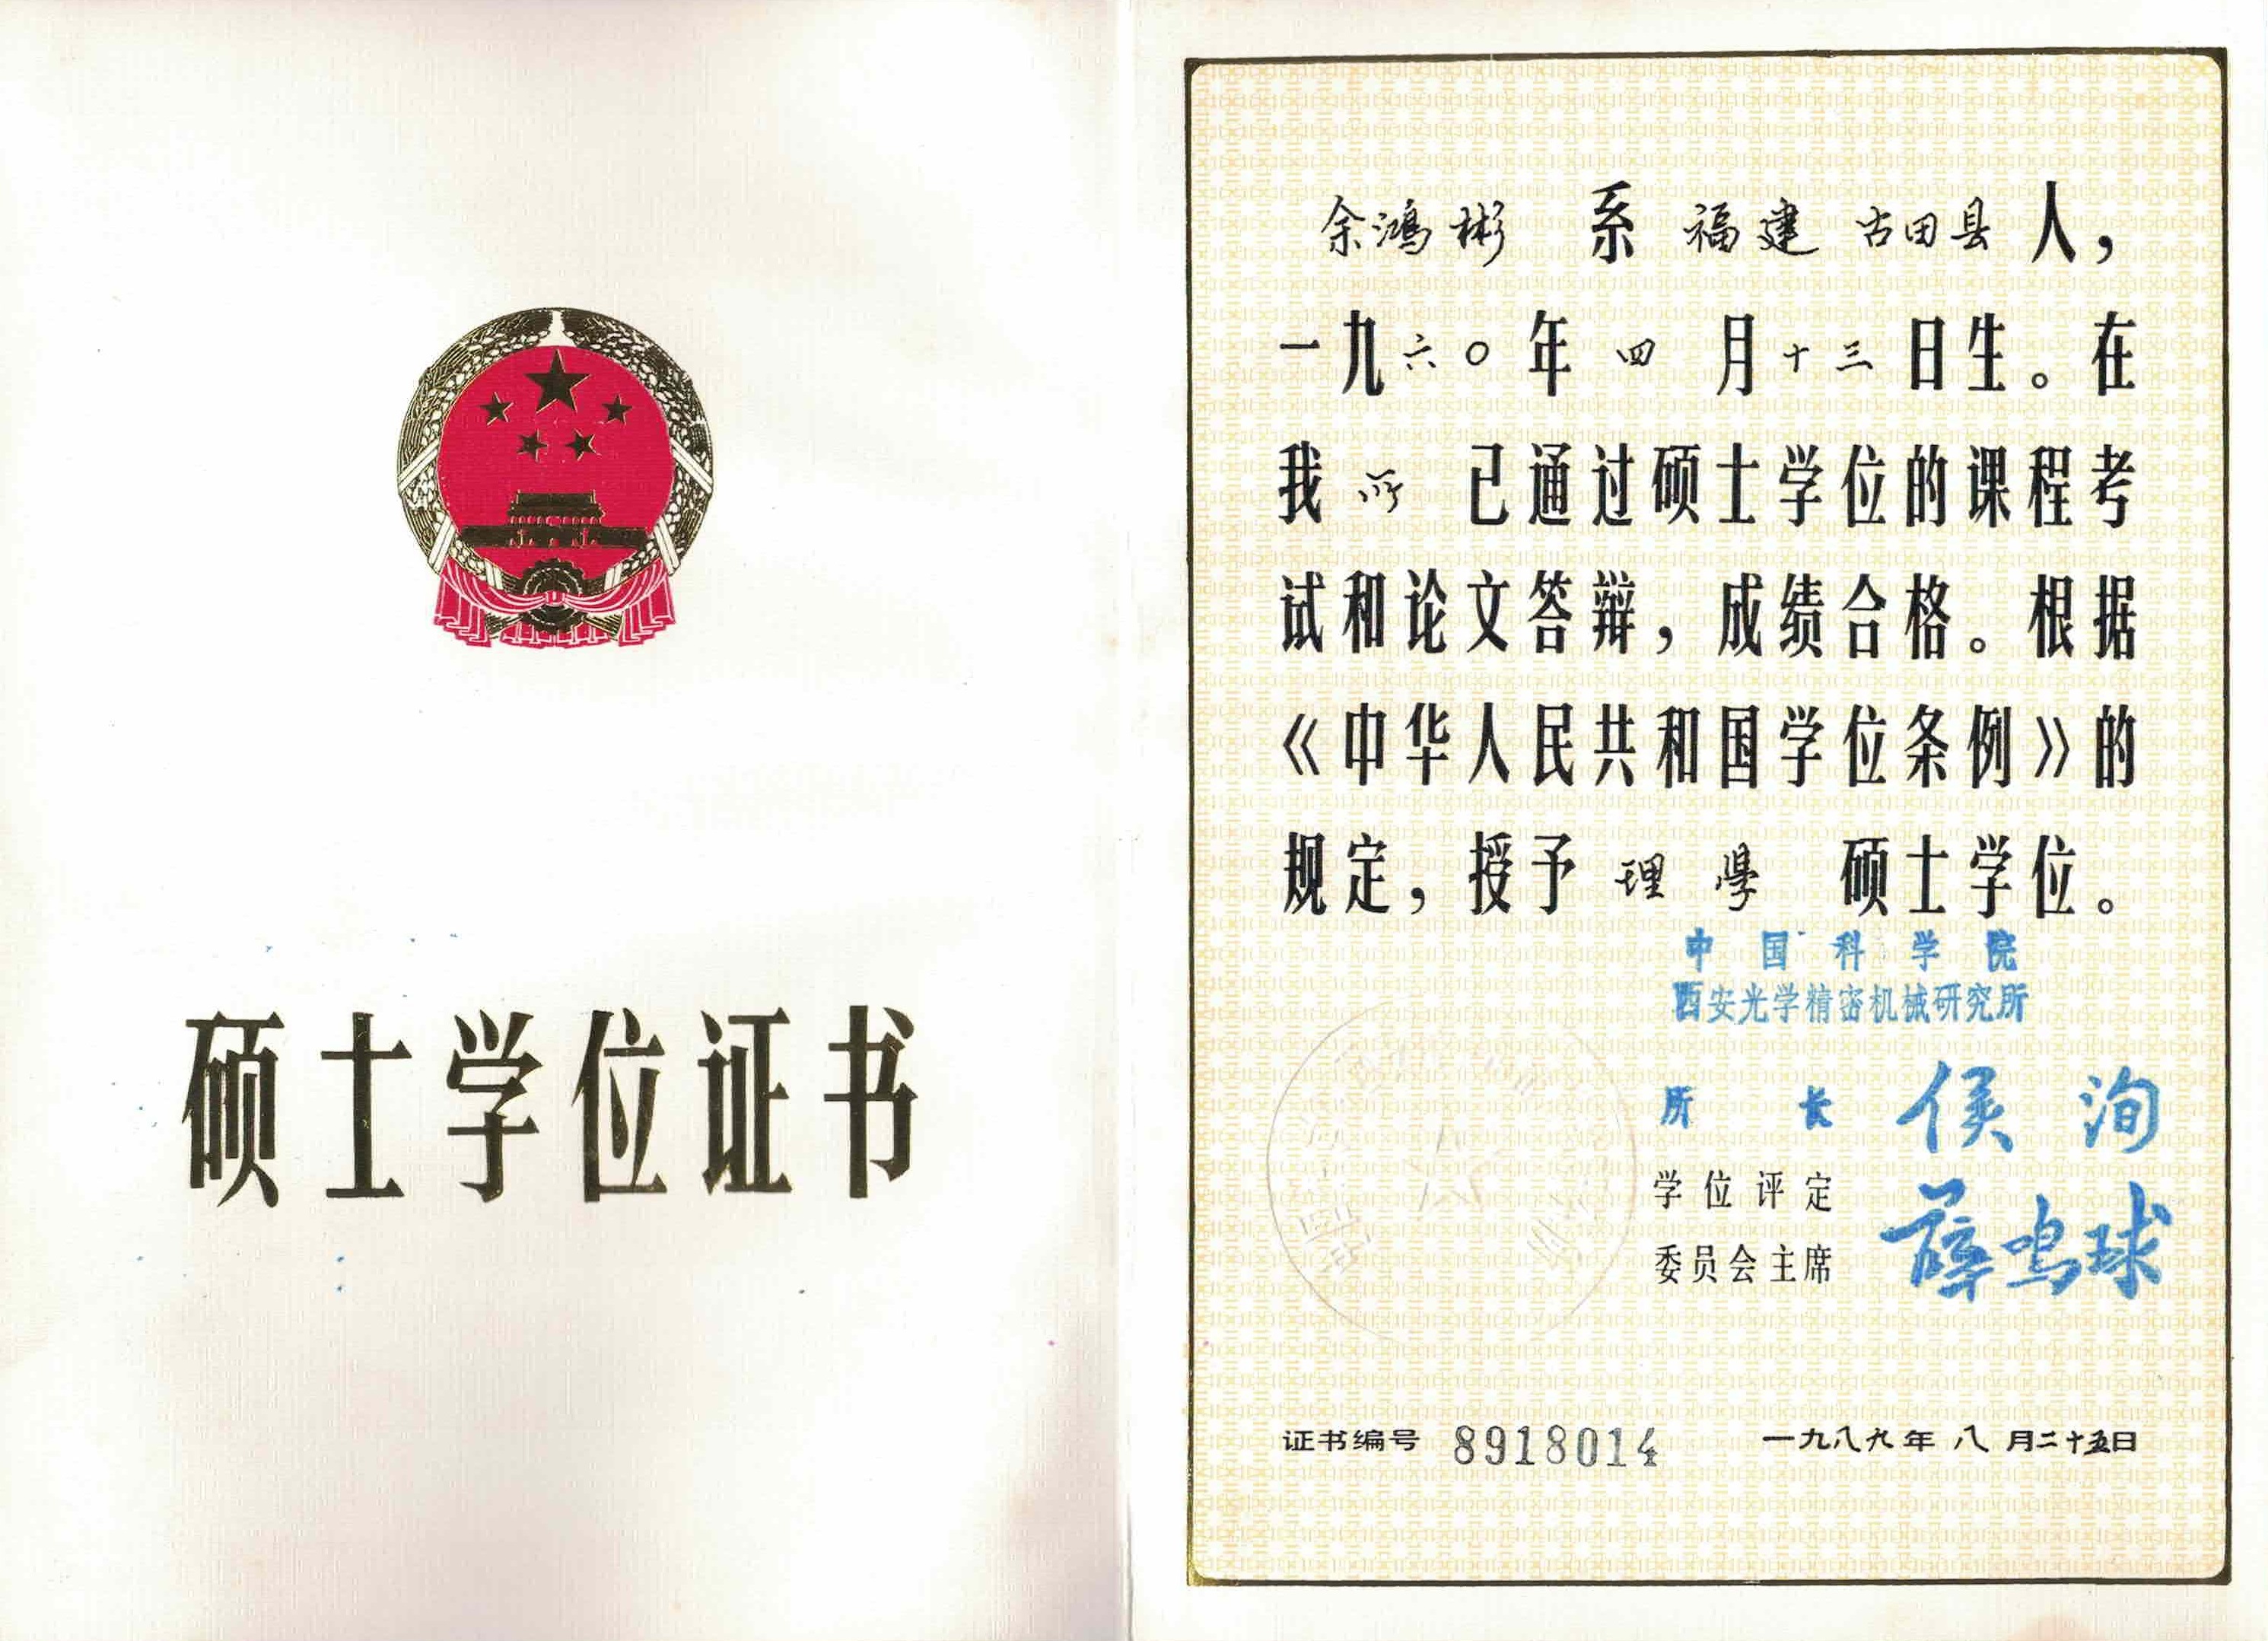 硕士学位证书
余鸿彬 系 福建 古田县 人，
一九六〇年 四 月十三日生。在
我 所 已通过硕士学位的课程考
试和论文答辩，成绩合格。根据
《中华人民共和国学位条例》的
规定，授予 理 學 硕士学位。
中国科学院
西安光学精密机械研究所
所 长 侯 洵
学位评定
委员会主席 薛鸣球
证书编号 8918014 一九八九年 八 月二十五日